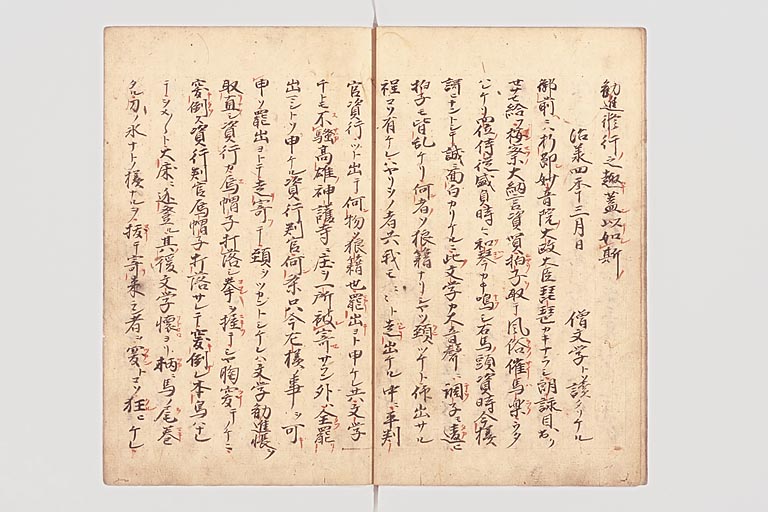 勧進修行之趣蓋以如斯
治承四年三月日　僧文学ト読タリケル
御前ニハ折節妙音院大政大臣琵琶カキナラシ朗詠目出ク
サセ給フ按察大納言資賢拍子取テ風俗催馬楽ウタ
ハレケリ侍従盛貞時ニ和琴カキ鳴シ右馬頭資時今様
謌ヒナントシテ誠ニ面白カリケルニ此文学カ大音声ニ調子モ違ヒ
拍子モ皆乱ケリ何者ソ狼籍ナリシヤツ頸ツケト仰出サル
程コソ有ケレハヤリヲノ者共我モ〳〵ト走出ケル中ニ平判
官資行ツト出テ何物ソ狼籍也罷出ヨト申ケレ共文学
千トモ不騒高雄神護寺ニ庄ヲ一所被寄サラン外ハ全罷
出マシトソ申ケル資行判官何条只今左様ノ事ヲ可
申ソ罷出ヨトテ走寄テ頸ヲツカントシケレハ文学勧進帳ヲ
取直シ資行カ烏帽子打落シ拳ヲ握テシヤ胸突テノケニ
突倒ス資行判官烏帽子打落サレテ突倒レ本鳥ハナシ
テシメ〳〵ト大床ニ逃登ル其後文学懐ヨリ柄ニ馬ノ尾巻
タル刀ノ氷ナトノ様ナルヲ抜テ寄来ン者ヲ突トコソ狂ニケレ